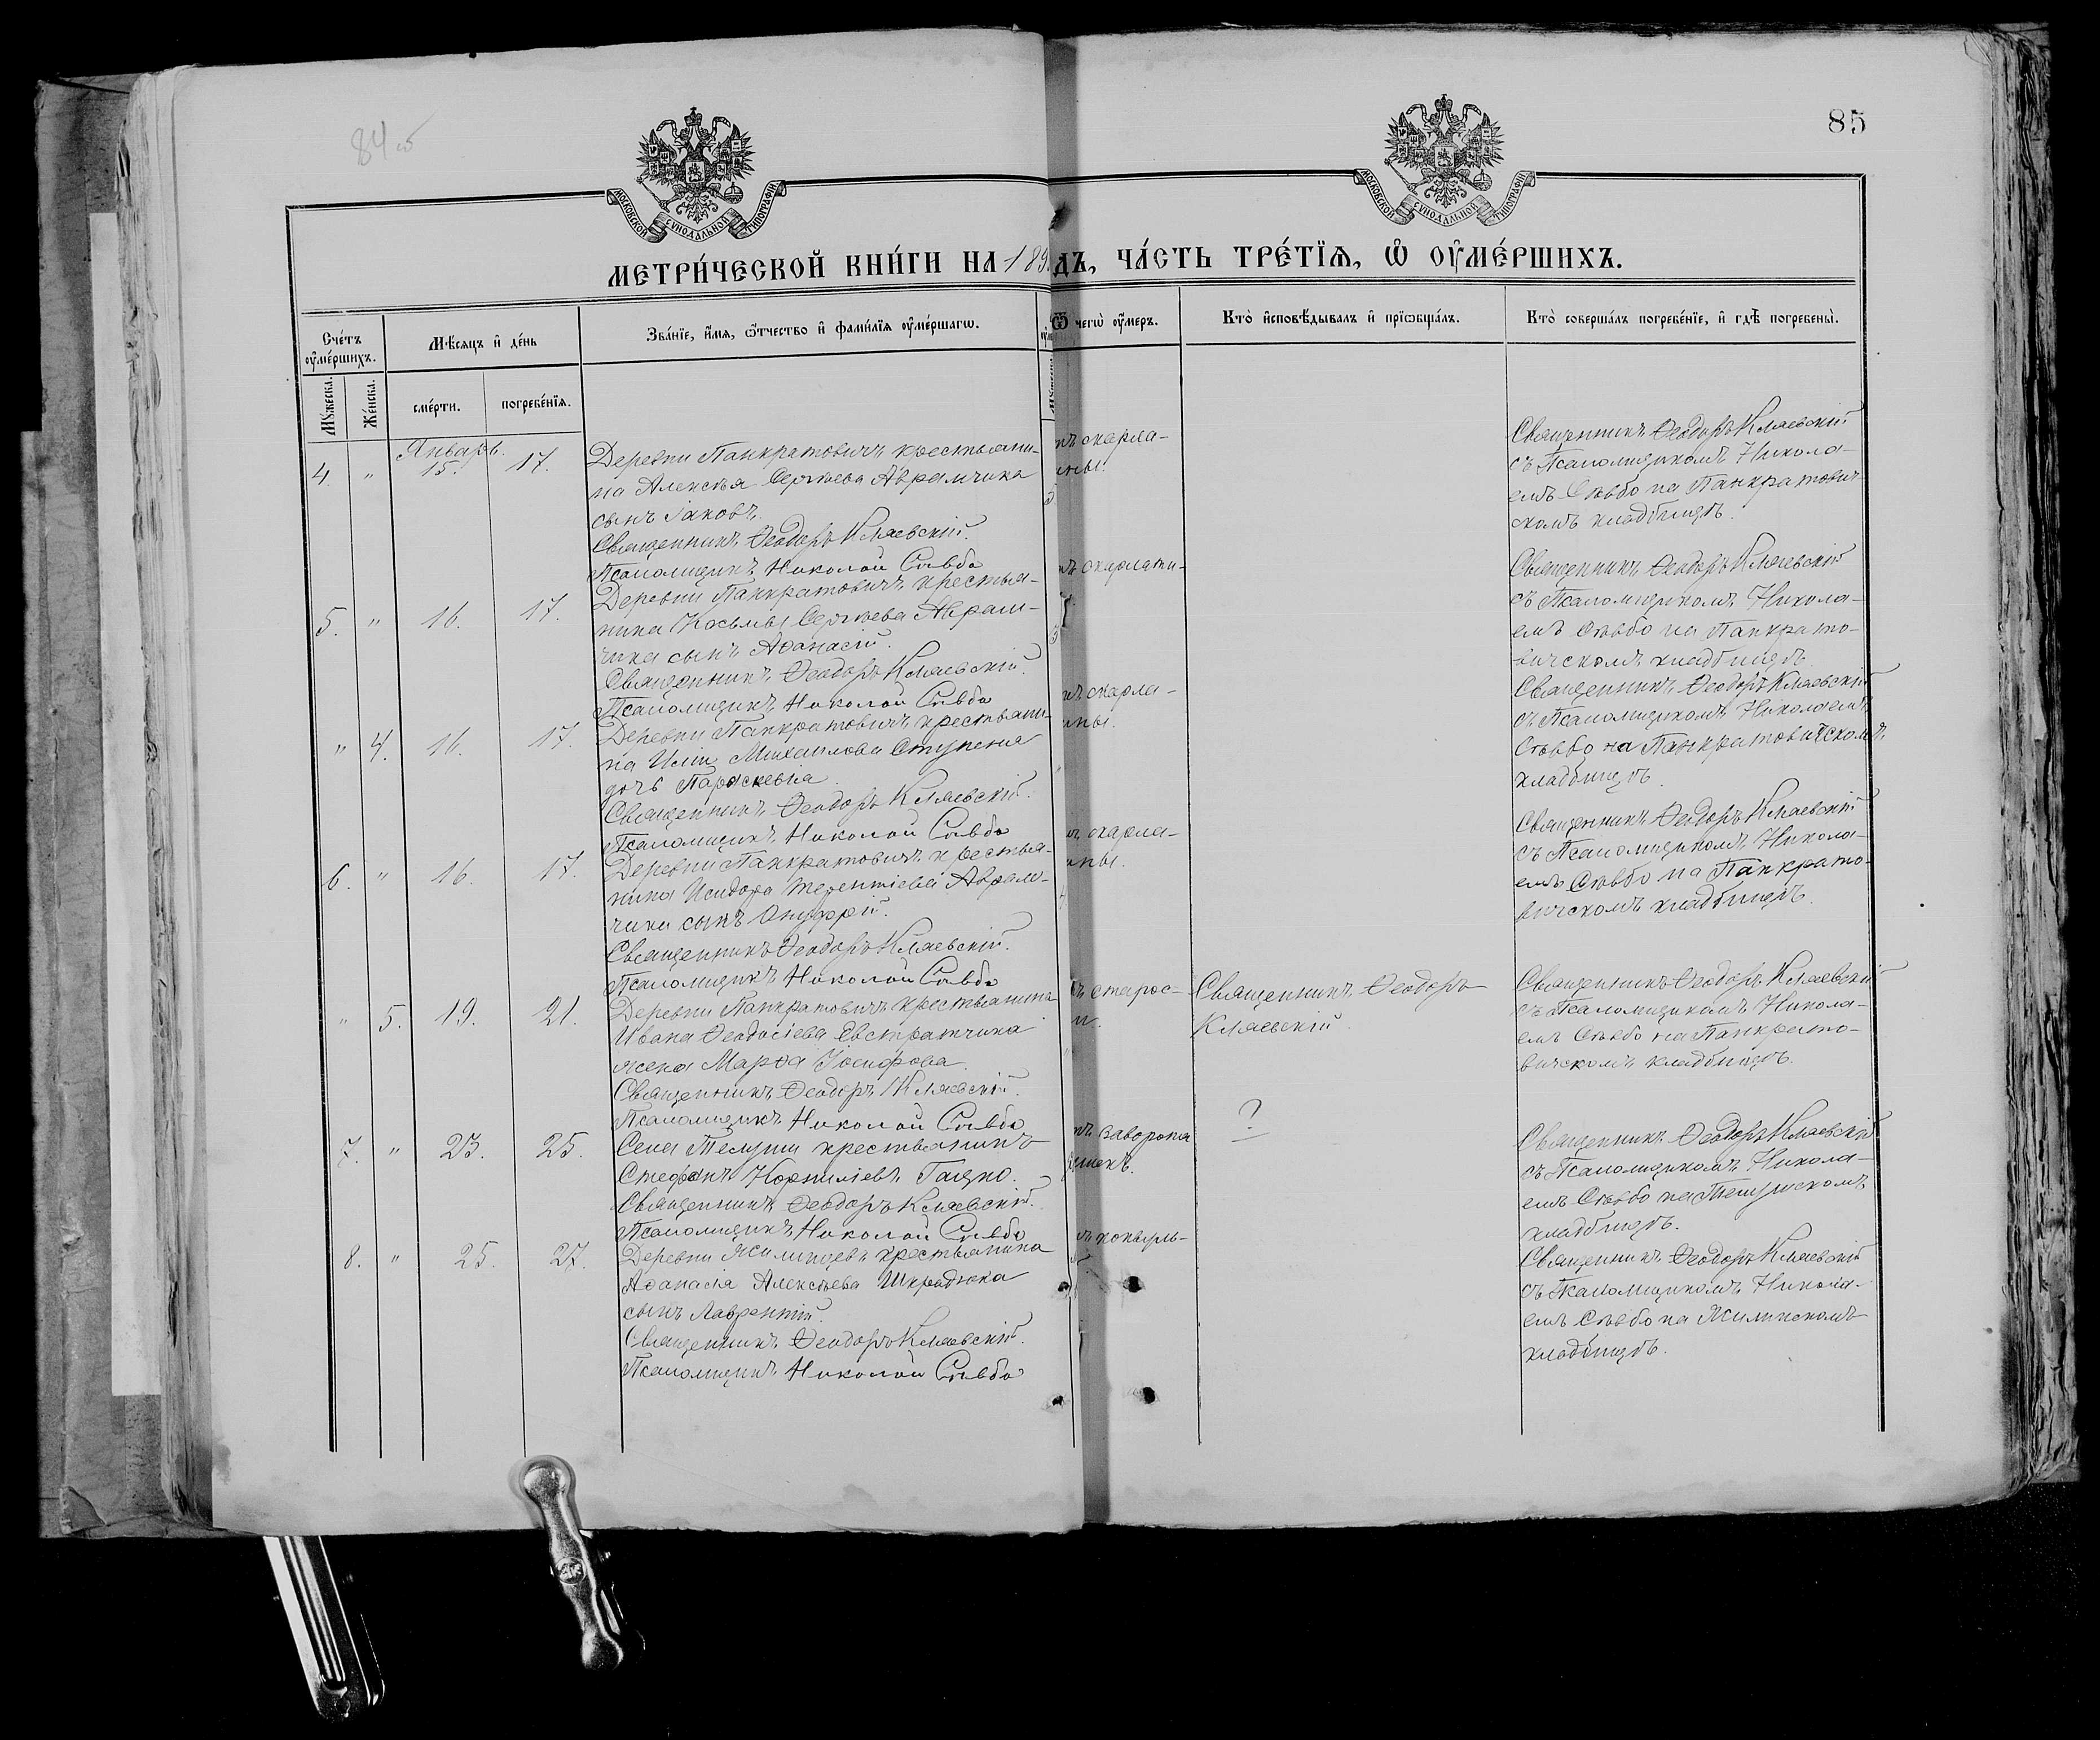 84 об
85
МОСКОВСКОЙ СѴНОДАЛЬНОЙ ТИПОГРАФІИ
МОСКОВСКОЙ СѴНОДАЛЬНОЙ ТИПОГРАФІИ
МЕТРИ́ЧЕСКОЙ КНИ́ГИ НА 189 ДЪ, ЧА́СТЬ ТРЕ́ТЇѦ, Ѡ҆ ОУ҆МЕ́РШИХЪ.
Сче́тъ оу҆ме́ршихъ.
Мѣ́сѧцъ и҆ де́нь
Зва́нїе, и҆́мѧ, ѻ҆́тчество и҆ фами́лїѧ оу҆ме́ршагѡ.
Ѿ чегѡ̀ оу҆́меръ.
Кто̀ и҆сповѣ́дывалъ и҆ прїѡбща́лъ.
Кто̀ соверша́лъ погребе́нїе, и҆ гдѣ̀ погребены̀.
Мꙋ́жеска.
Же́нска.
сме́рти.
погребе́нїѧ.
Январь
4. " 15. 17.
Деревни Панкратовичъ крестьяни-
на Алексѣя Сергѣева Аврамчика
сынъ Іаковъ.
Священникъ Ѳеодоръ Кляевскій.
Псаломщикъ Николай Сѣвбо
скарла-
тины.
Священникъ Ѳеодоръ Кляевскій
съ Псаломщикомъ Никола-
емъ Сѣвбо на Панкратович-
скомъ кладбищѣ.
5. " 16. 17.
Деревни Панкратовичъ крестья-
нина Косьмы Сергѣева Аврам-
чика сынъ Аѳанасій.
Священникъ Ѳеодоръ Кляевскій.
Псаломщикъ Николай Сѣвбо
скарлати-
Священникъ Ѳеодоръ Кляевскій
съ Псаломщикомъ Никола-
емъ Сѣвбо на Панкрато-
вичскомъ кладбищѣ.
" 4. 16. 17.
Деревни Панкратовичъ крестьяни-
на Иліи Михаилова Ступеня
дочь Параскевіа.
Священникъ Ѳеодоръ Кляевскій.
Псаломщикъ Николай Сѣвбо
скарла-
тины.
Священникъ Ѳеодоръ Кляевскій
съ Псаломщикомъ Николаемъ
Сѣвбо на Панкратовичскомъ
кладбищѣ.
6. " 16. 17.
Деревни Панкратовичъ крестья-
нина Исидора Терентіева Аврам-
чика сынъ Онуфрій.
Священникъ Ѳеодоръ Кляевскій.
Псаломщикъ Николай Сѣвбо
скарла-
тины.
Священникъ Ѳеодоръ Кляевскій
съ Псаломщикомъ Никола-
емъ Сѣвбо на Панкрато-
вичскомъ кладбищѣ.
" 5. 19. 21.
Деревни Панкратовичъ крестьянина
Ивана Ѳеодосіева Евстратчика
жена Марѳа Іосифова.
Священникъ Ѳеодоръ Кляевскій.
Псаломщикъ Николай Сѣвбо
старос-
Священникъ Ѳеодоръ
Кляевскій.
Священникъ Ѳеодоръ Кляевскій
съ Псаломщикомъ Никола-
емъ Сѣвбо на Панкрато-
вичскомъ кладбищѣ.
7. " 23. 25.
Села Телуши крестьянинъ
Стефанъ Корниліевъ Гацко.
Священникъ Ѳеодоръ Кляевскій.
Псаломщикъ Николай Сѣвбо
заворота
кишекъ.
?
Священникъ Ѳеодоръ Кляевскій
съ Псаломщикомъ Никола-
емъ Сѣвбо на Телушскомъ
кладбищѣ.
8. " 25. 27.
Деревни Жилинцевъ крестьянина
Аѳанасія Алексѣева Шкрадюка
сынъ Лаврентій.
Священникъ Ѳеодоръ Кляевскій.
Псаломщикъ Николай Сѣвбо
Священникъ Ѳеодоръ Кляевскій
съ Псаломщикомъ Никола-
емъ Сѣвбо на Жилинскомъ
кладбищѣ.